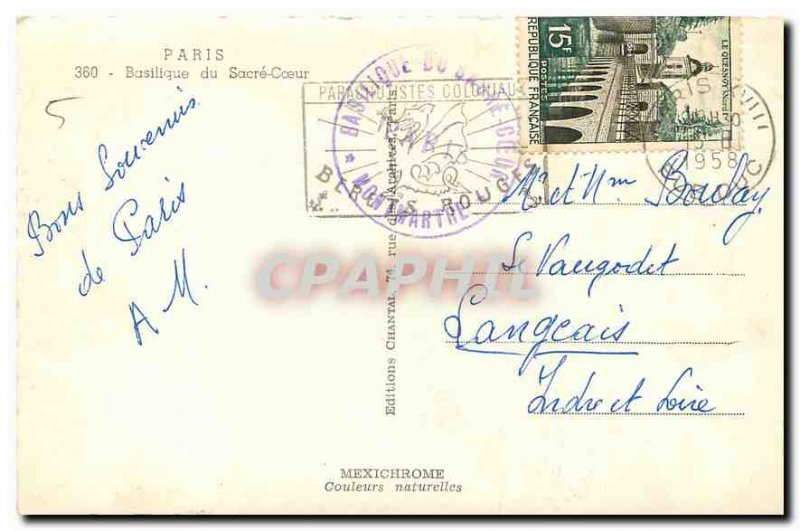 PARIS
360 - Basilique du Sacré-Cœur
5
Bons Souvenirs
de Paris
A M.
PARACHUTISTES COLONIAUX
BERETS ROUGES
BASILIQUE DU SACRÉ-CŒUR
MONTMARTRE
15F
POSTES
REPUBLIQUE FRANÇAISE
LE QUESNOY
PARIS XVIII
1958
Mr et Mm Boulay
Le Vaugodet
Langeais
Indre et Loire
Editions CHANTAL, 74, rue des Archives, Paris
CPAPHIL
MEXICHROME
Couleurs naturelles